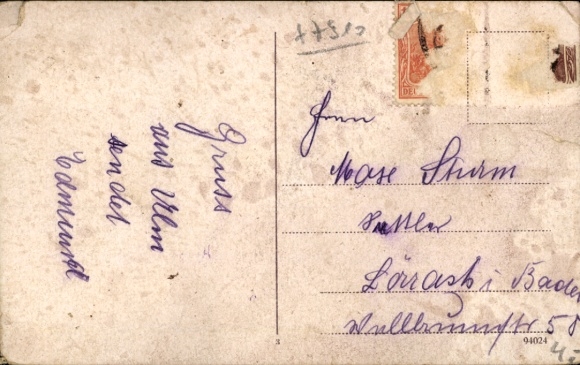 Gruss
aus Ulm
sendet
Edmund
Herrn
Max Sturm
Sattler
Lörrach i Baden
Wallbrunnstr 58
3
94024